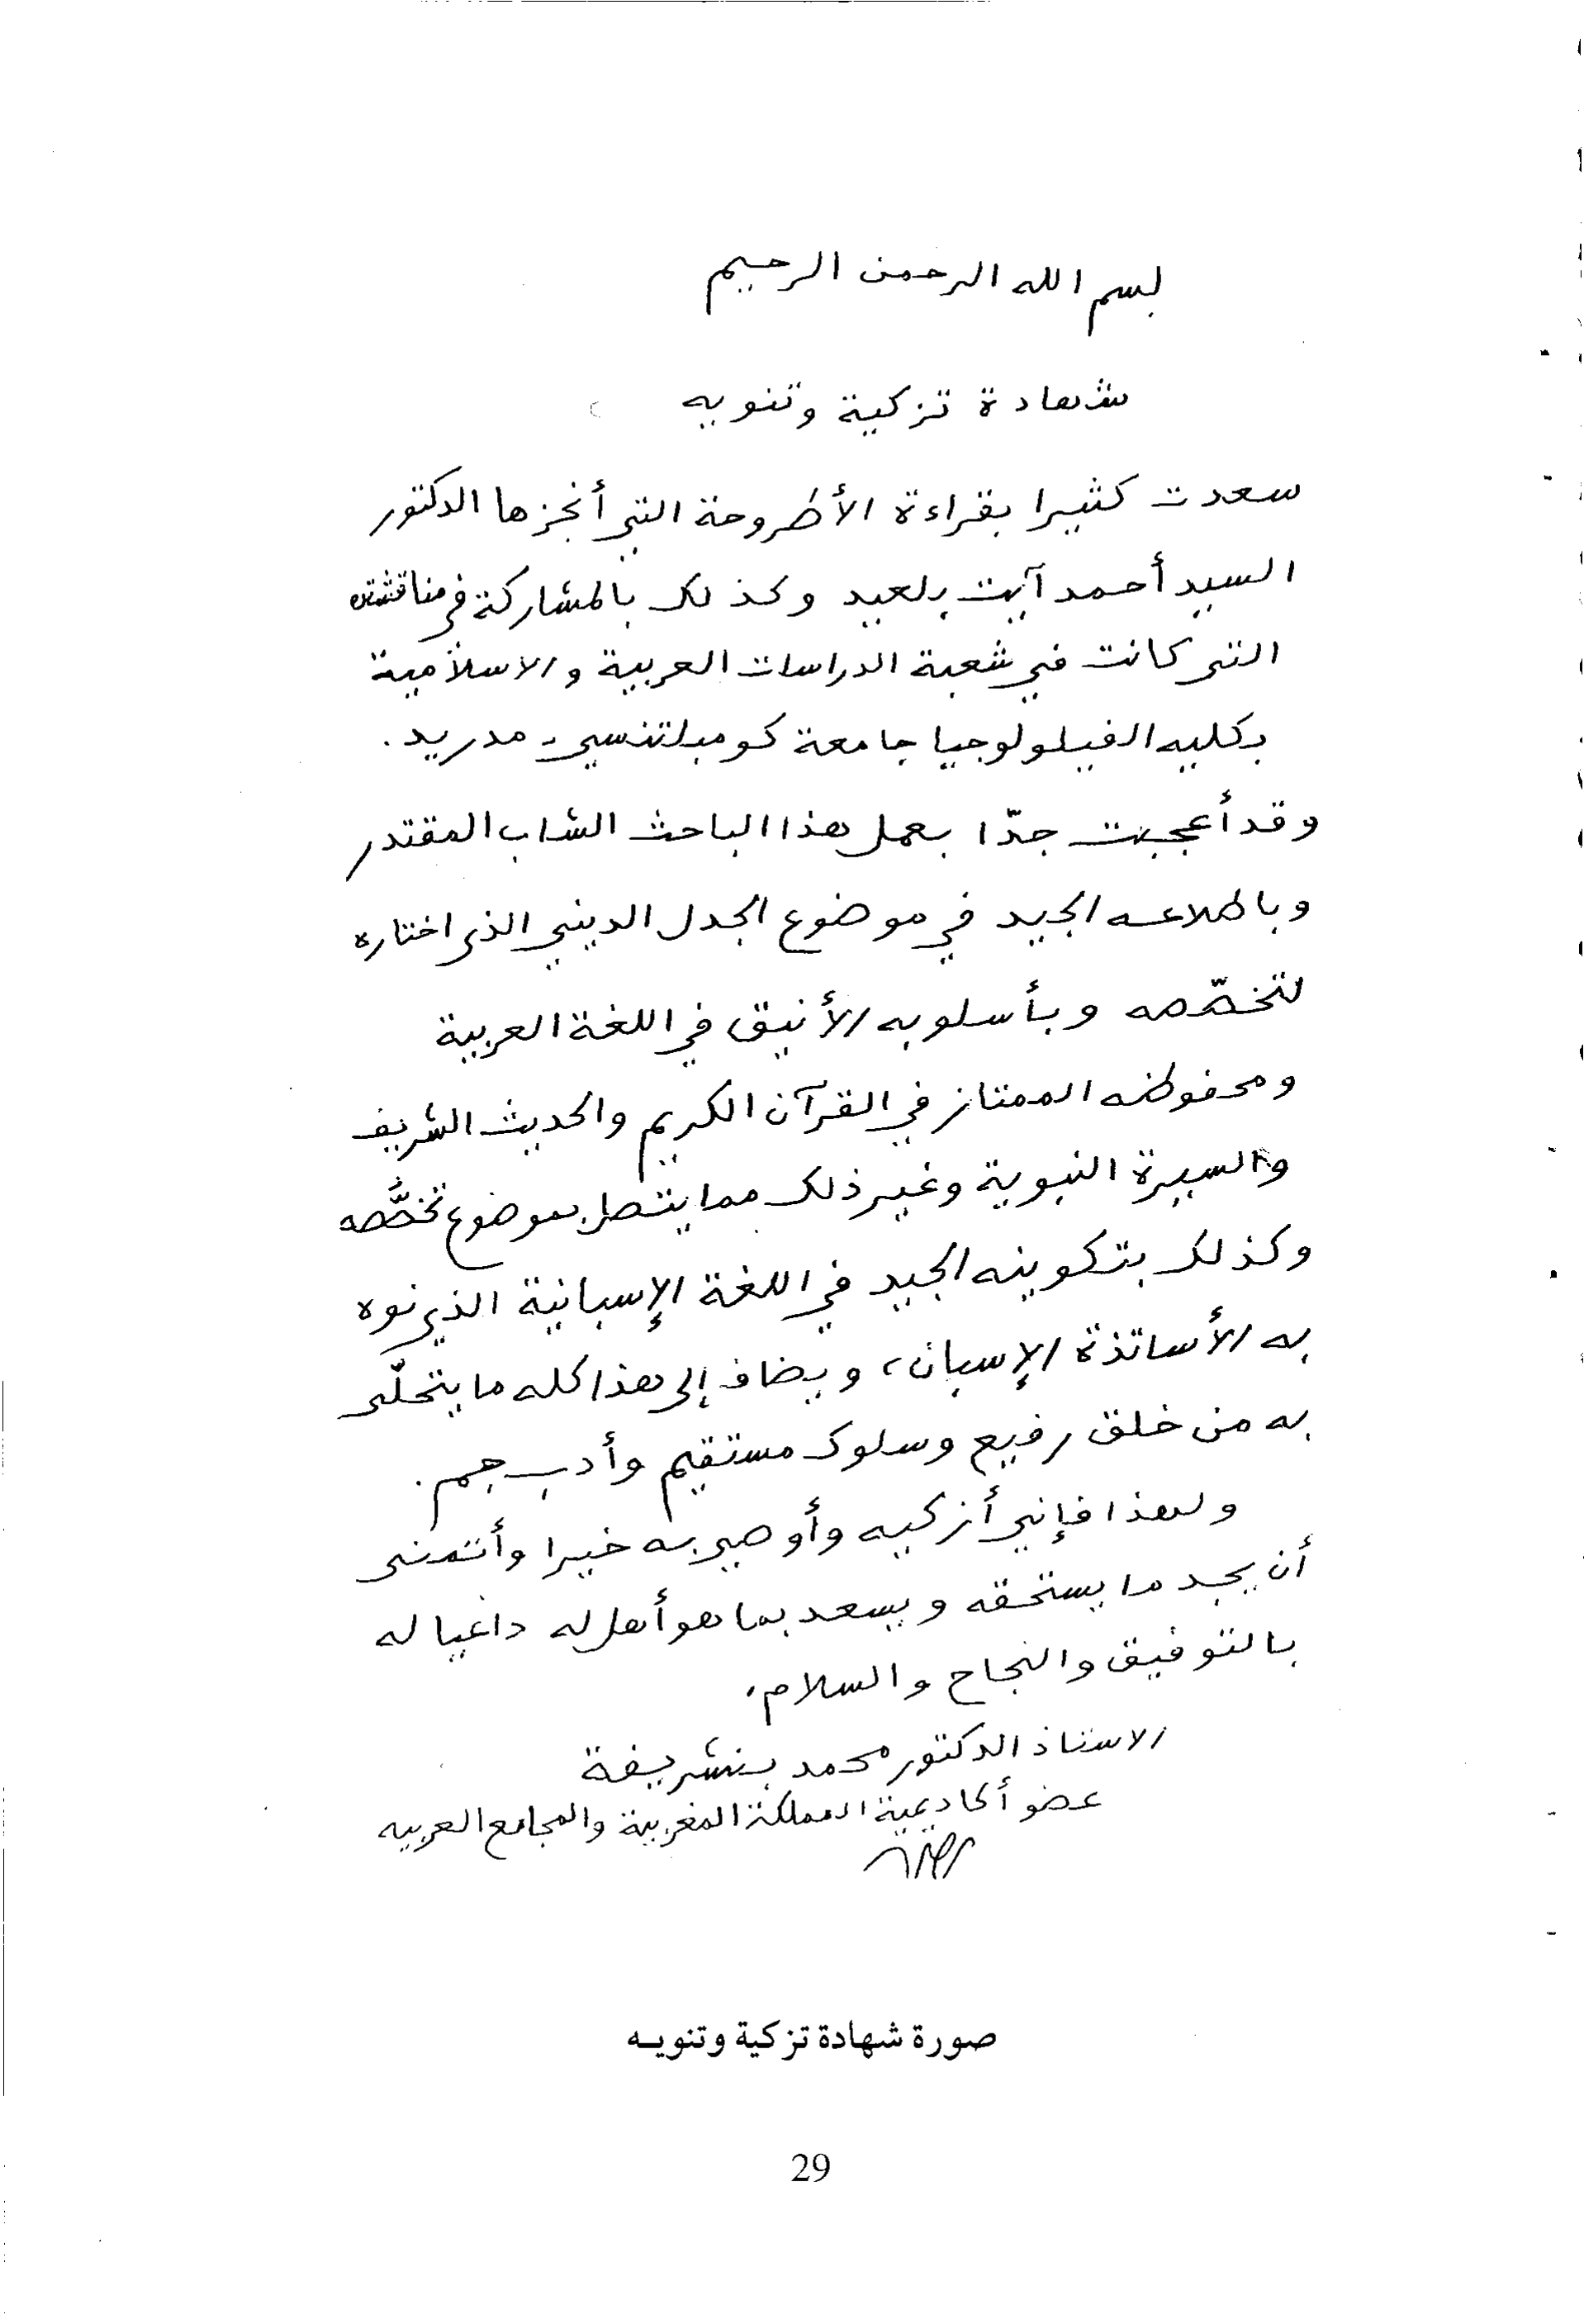 بسم الله الرحمن الرحيم
شهادة تزكية وتنويه
سعدت كثيرا بقراءة الأطروحة التي أنجزها الدكتور
السيد أحمد آيت بلعيد وكذلك بالمشاركة في مناقشته
التي كانت في شعبة الدراسات العربية والاسلامية
بكليه الفيلولوجيا جامعة كومبلتنسي - مدريد.
وقد أعجبت جدّا بعمل هذا الباحث الشاب المقتدر
وباطلاعه الجيد في موضوع الجدل الديني الذي اختاره
لتخصّصه وبأسلوبه الأنيق في اللغة العربية
ومحفوظه الممتاز في القرآن الكريم والحديث الشريف
والسيرة النبوية وغير ذلك مما يتصل بموضوع تخصُّصه
وكذلك بتكوينه الجيد في اللغة الإسبانية الذي نوه
به الأساتذة الإسبان، ويضاف إلى هذا كله ما يتحلّى
به من خلق رفيع وسلوك مستقيم وأدب جم.
ولهذا فإني أزكيه وأوصي به خيرا وأتمنى
أن يجد ما يستحقه ويسعد بما هو أهل له داعيا له
بالتوفيق والنجاح والسلام.
الاستاذ الدكتور محمد بنشريفة
عضو أكاديمية المملكة المغربية والمجامع العربيه
صورة شهادة تزكية وتنويـه
29